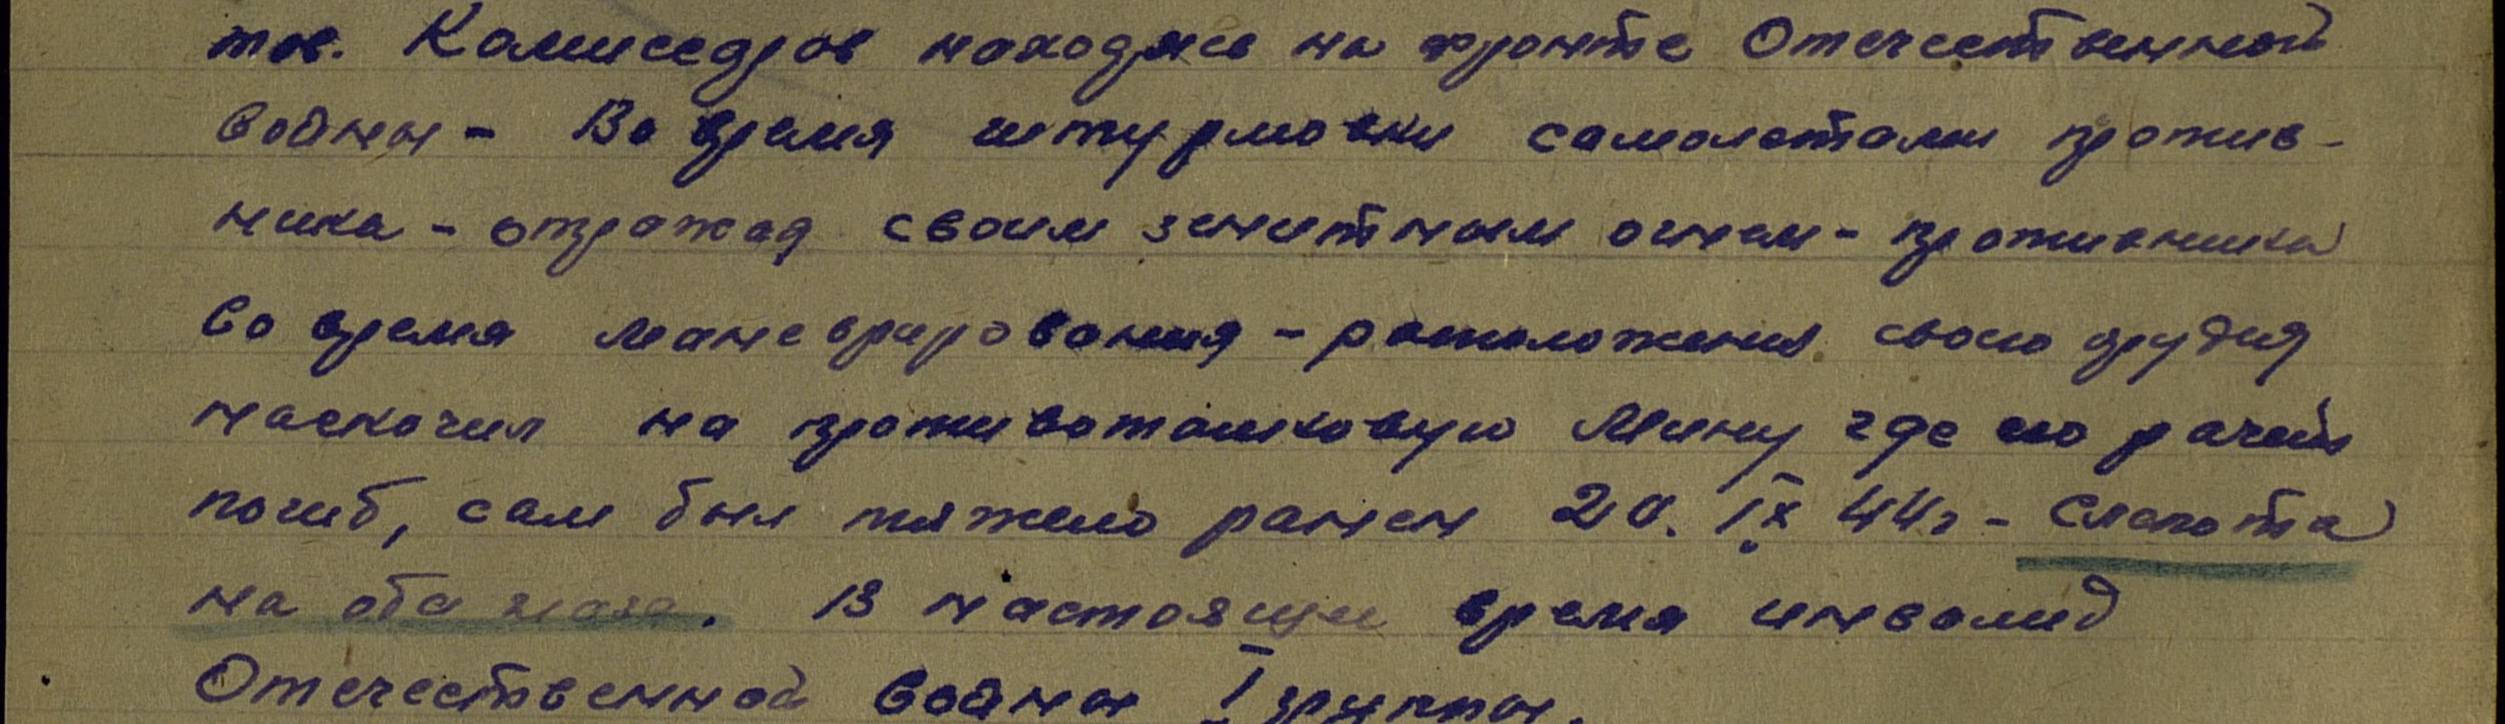 тов. Камиседров находясь на фронте Отечественной
войны - Во время штурмовки самолетами против-
ника - отражая своим зенитным огнем - противника
во время маневрирования - расположения своего орудия
наскочил на противотанковую мину где его расчет
погиб, сам был тяжело ранен 20. IX 44г - Слепота
на оба глаза. В настоящее время инвалид
Отечественной войны I группы.